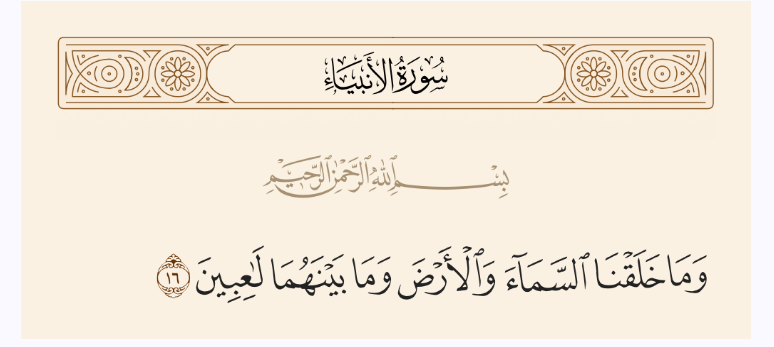 سُورَةُ الأَنبِيَاءِ
بِسْمِ ٱللَّهِ ٱلرَّحْمَٰنِ ٱلرَّحِيمِ
وَمَا خَلَقْنَا ٱلسَّمَآءَ وَٱلْأَرْضَ وَمَا بَيْنَهُمَا لَٰعِبِينَ ١٦